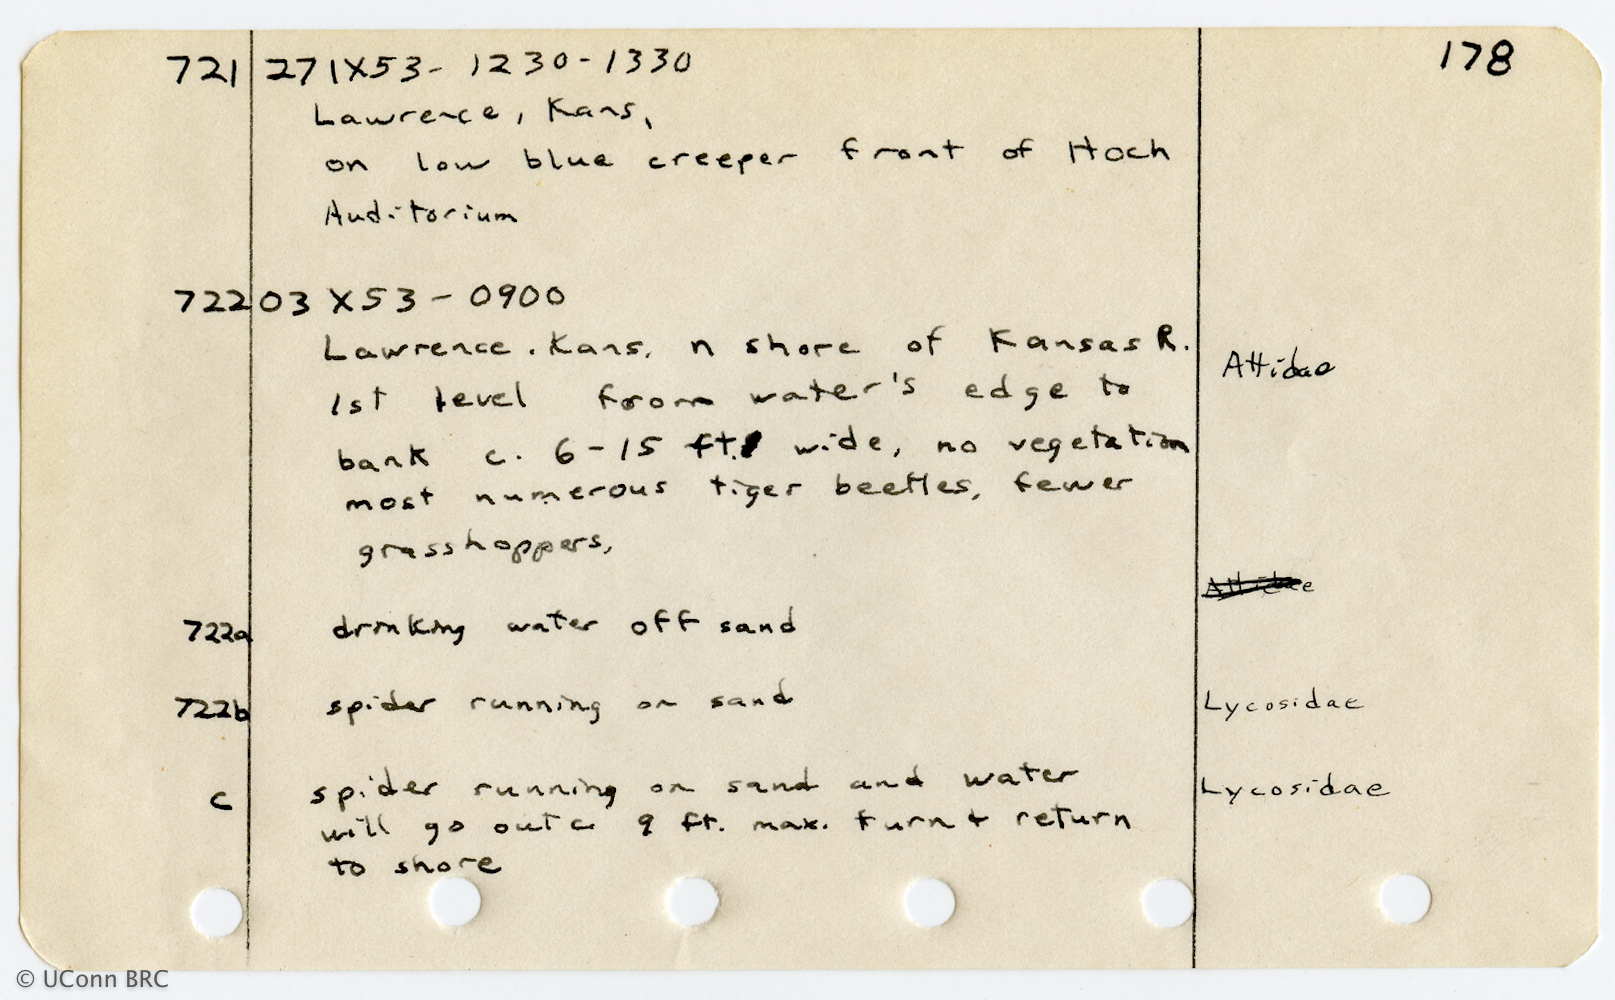 178
721 271X53- 1230-1330
Lawrence, Kans,
on low blue creeper front of Hoch
Auditorium
722 03 X53 - 0900
Lawrence. Kans. n shore of Kansas R.
Attidae
1st level from water's edge to
bank c. 6-15 ft. wide, no vegetation
most numerous tiger beetles, fewer
grasshoppers,
Attidae
722a drinking water off sand
722b spider running on sand Lycosidae
c spider running on sand and water Lycosidae
will go out c. 9 ft. max. turn + return
to shore
© UConn BRC